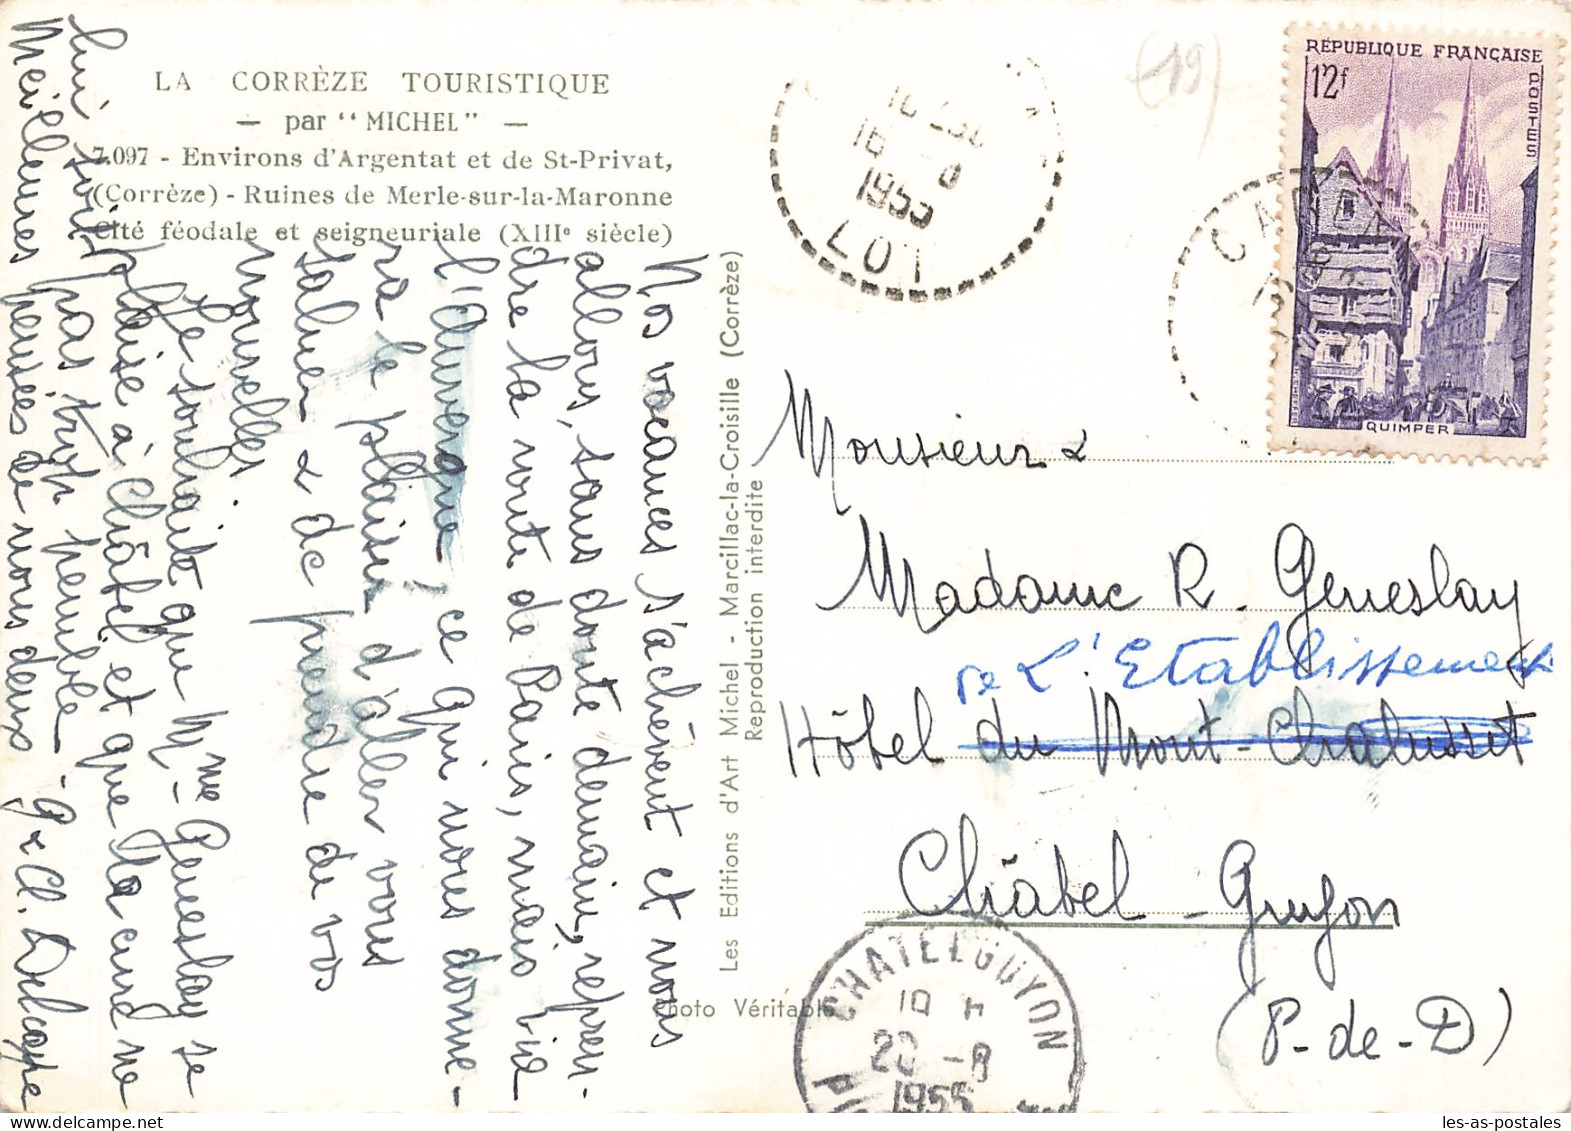 LA CORRÈZE TOURISTIQUE
— par "MICHEL" —
7.097 - Environs d'Argentat et de St-Privat,
(Corrèze) - Ruines de Merle-sur-la-Maronne
Cité féodale et seigneuriale (XIIIe siècle)
Nos vacances s'achèvent et nous
allons, sans doute demain, repren-
dre la route de Paris, mais via
l'Auvergne ; ce qui nous donne-
ra le plaisir d'aller vous
saluer & de prendre de vos
nouvelles.
Je souhaite que Mme Geneslay se
plaise à Châtel et que la cure ne
lui soit pas trop pénible - G & Cl. Delcope
Meilleures pensées de nous deux
Les Editions d'Art Michel - Marcillac-la-Croisille (Corrèze)
Reproduction interdite
Photo Véritable
(19)
16
1955
LOT
RÉPUBLIQUE FRANÇAISE
12f
POSTES
QUIMPER
Monsieur &
Madame R. Geneslay
de L'Etablissement
Hôtel du Mont-Chalusset
Châtel-Guyon
(P-de-D)
CHATELGUYON
20 -8
1955
les-as-postales